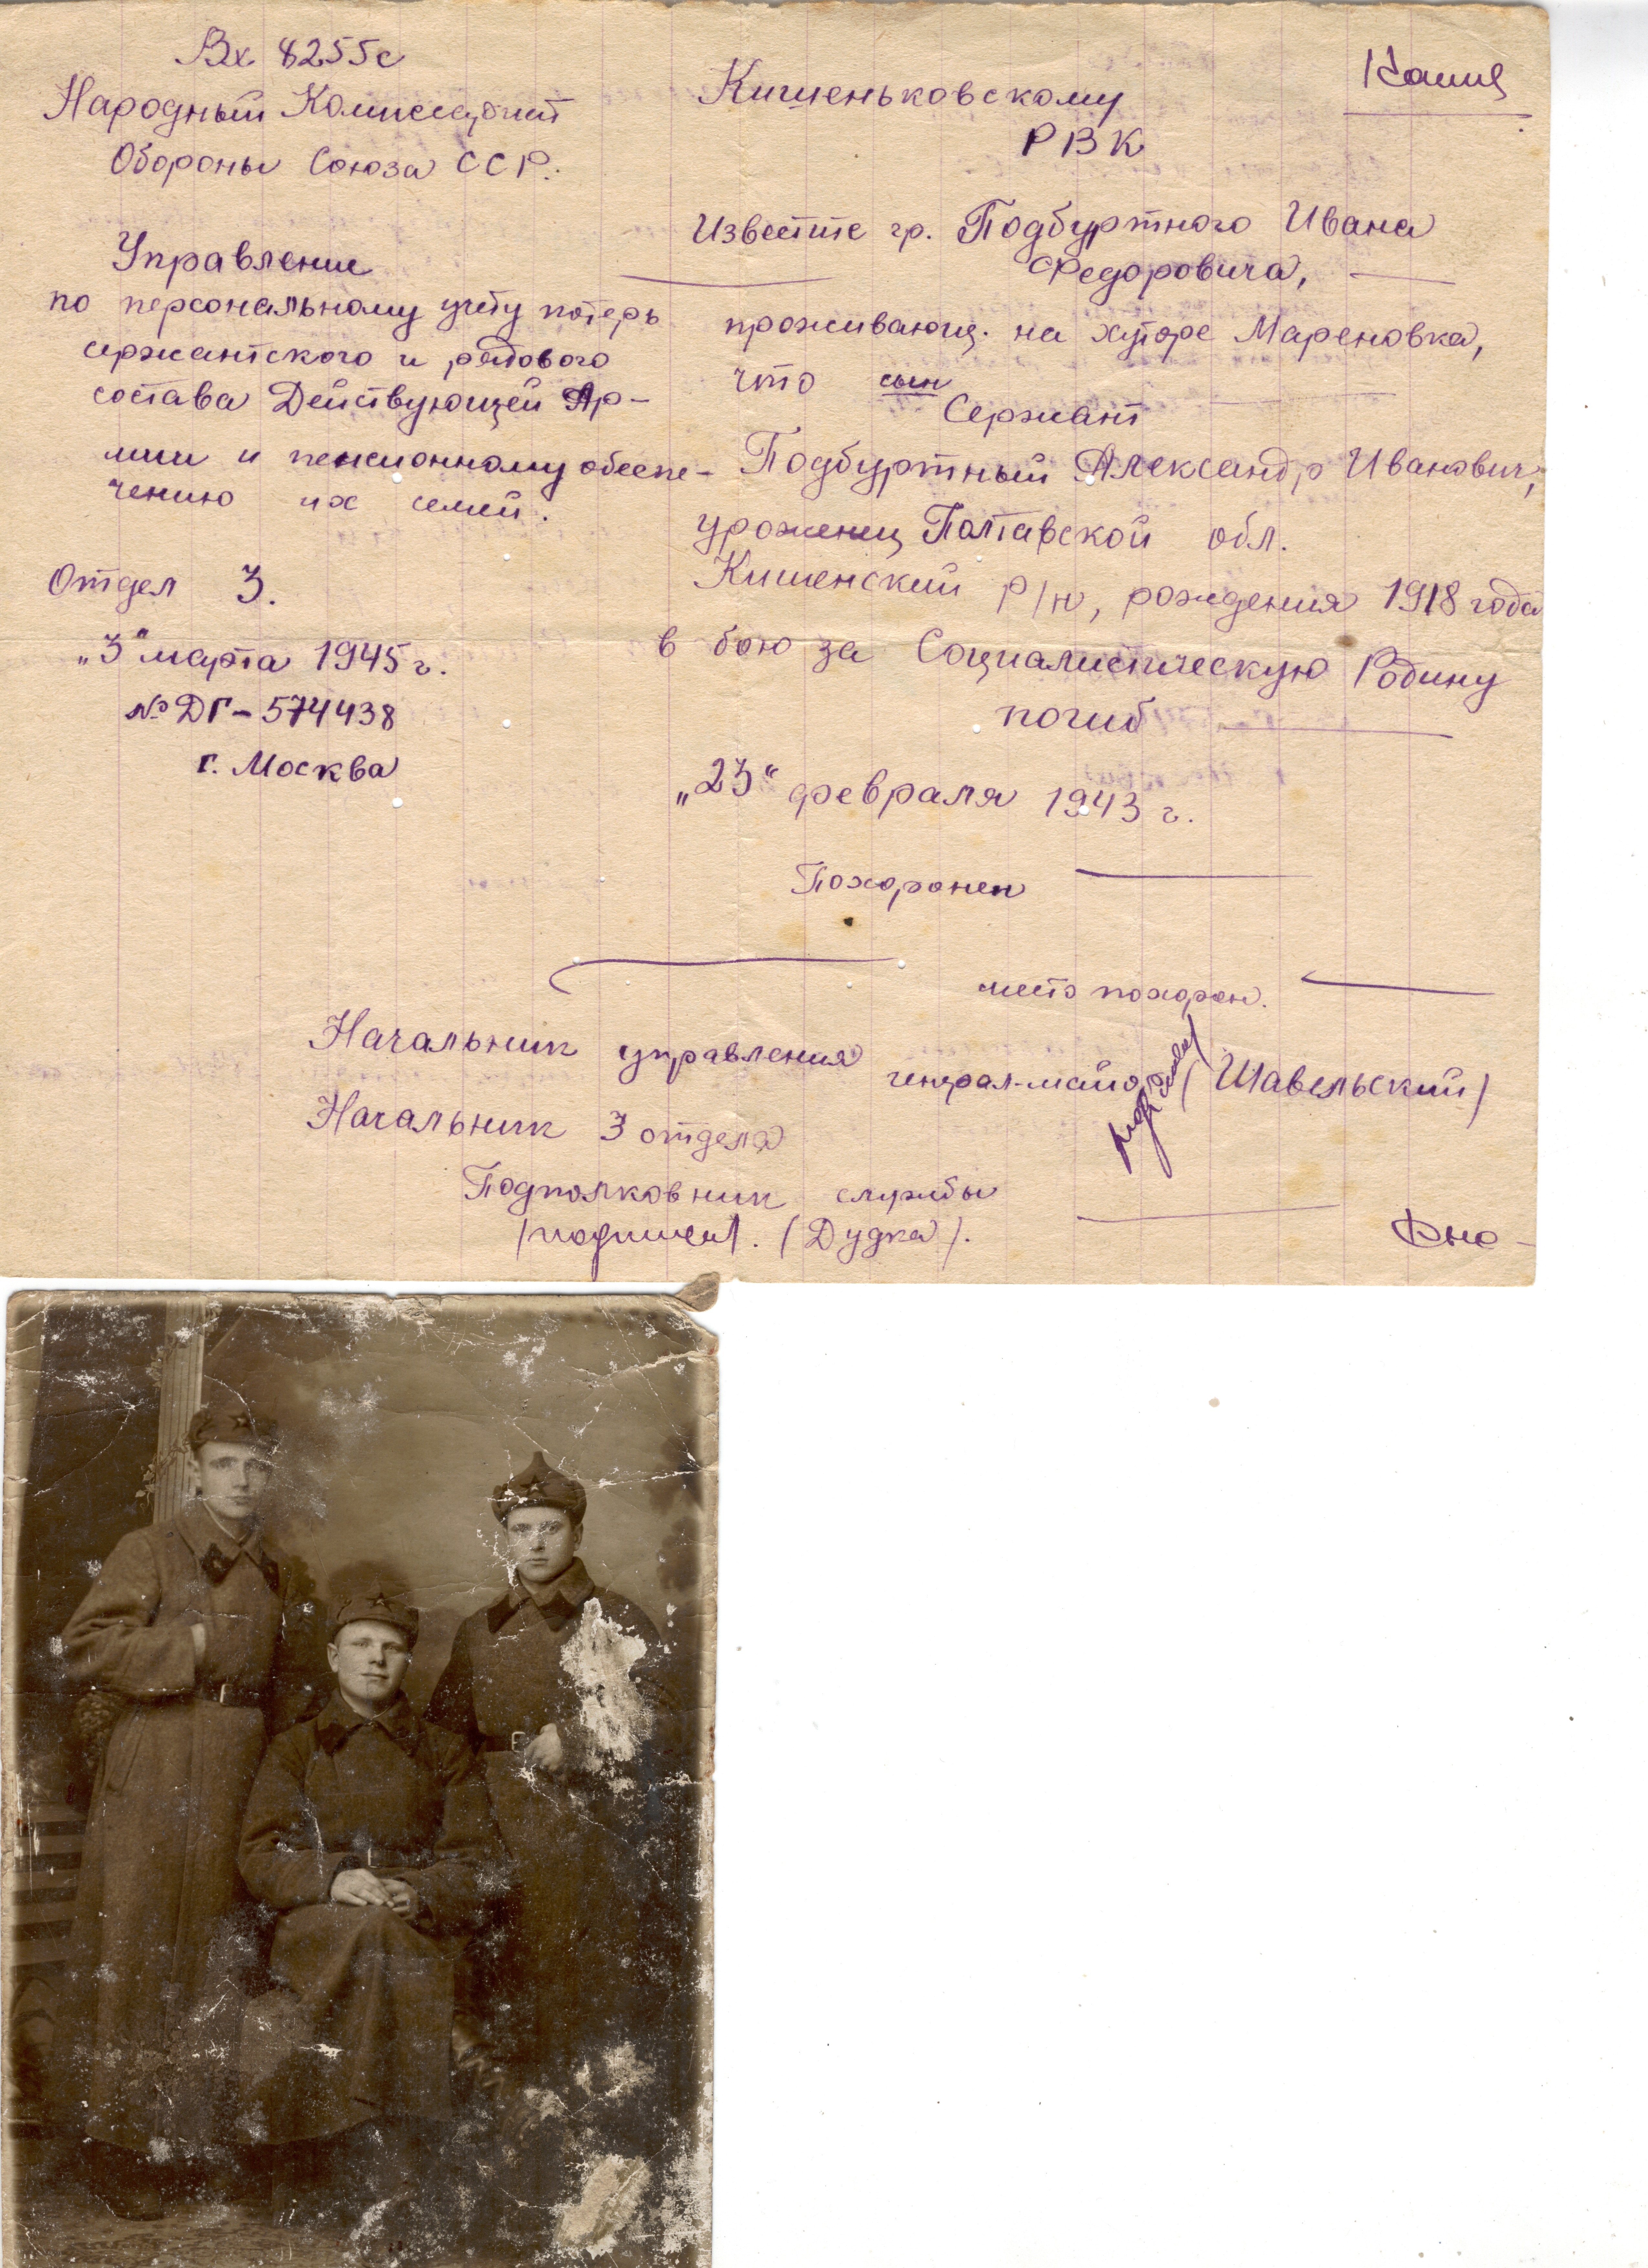 Вх 8255с
Народный Комиссариат
Обороны Союза ССР.
Управление
по персональному учёту потерь
сержантского и рядового
состава Действующей Ар-
мии и пенсионному обеспе-
чению их семей.
Отдел 3.
„3" марта 1945 г.
№ ДГ-574438
г. Москва
Копия
Кишеньковскому
РВК
Известите гр. Подбуртного Ивана
Федоровича,
проживающ. на хуторе Мареновка,
что сын
Сержант
Подбуртный Александр Иванович,
уроженец Полтавской обл.
Кишенский р/н, рождения 1918 года
в бою за Социалистическую Родину
погиб
„23" февраля 1943 г.
Похоронен
место похорон.
Начальник управления
генерал-майор (Шавельский)
Начальник 3 отдела
Подполковник службы
/подписал. (Дудка).